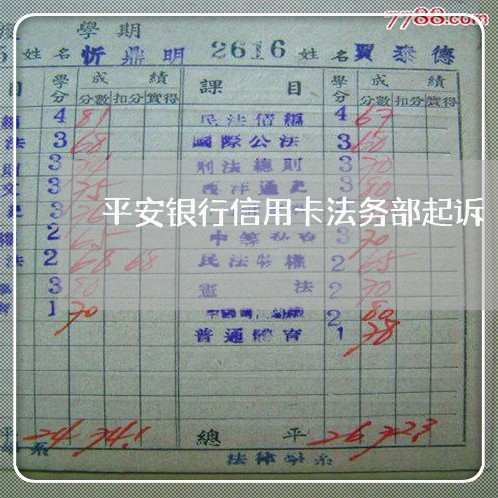 7788.com
學期
姓名 忻鼎明 2616 姓名 賈泰德
目 學分 成績 課目 學分 成績
分數 扣分 實得 分數 扣分 實得
4 81 民法債編 4 67
法 3 68 國際公法 3 60
3 刑法總則 3 70
3 75 西洋通史 3 80
平安银行信用卡法务部起诉
2 65 3 70
法 2 68 68 民法物權 2 65
3 80 憲法 2 70
1 70 2 80
普通體育 1 78
24 74.1 總平 26 72.3
系 法律學系